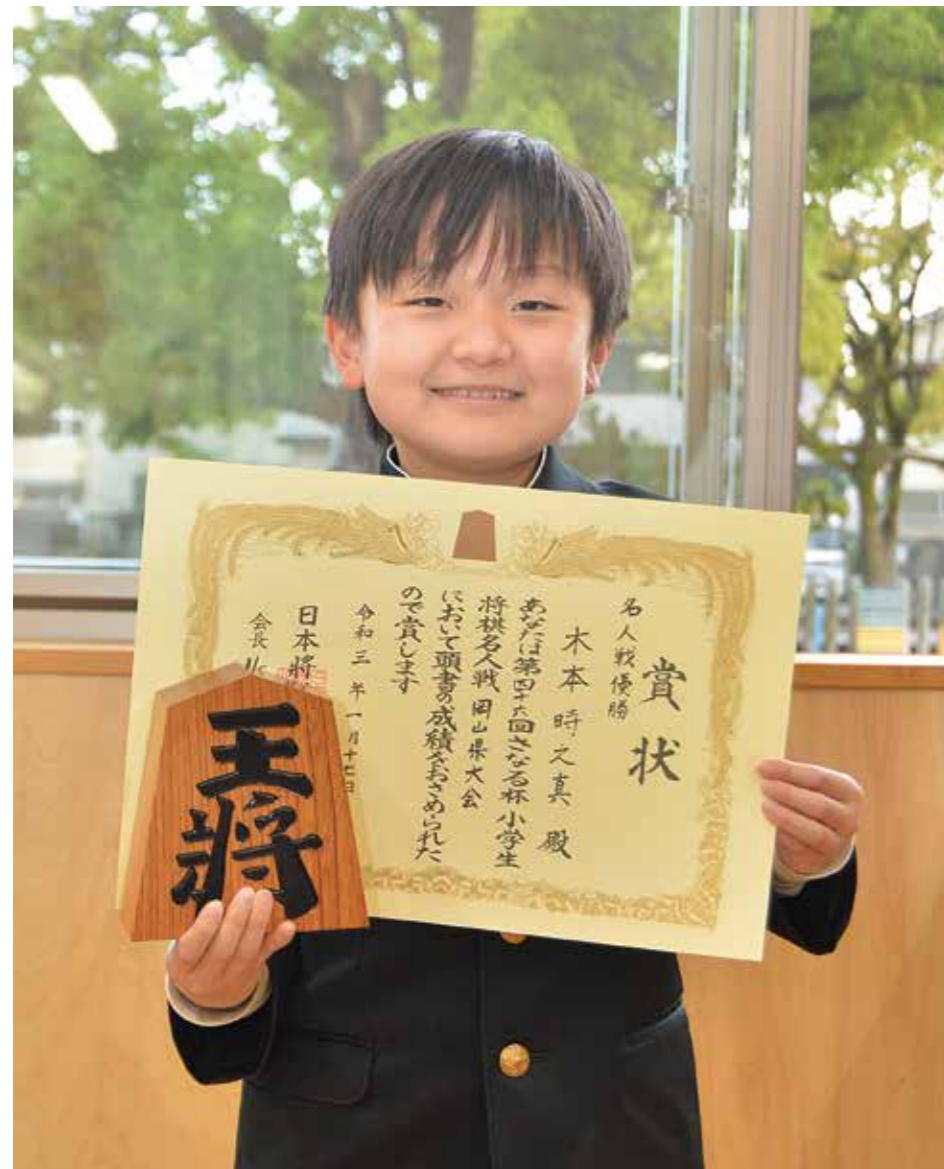 賞状
名人戦優勝
木本時之真 殿
あなたは第四十六回さなる杯小学生
将棋名人戦 岡山県大会
において頭書の成績をおさめられた
ので賞します
令和三年一月十七日
日本将
会長
王将